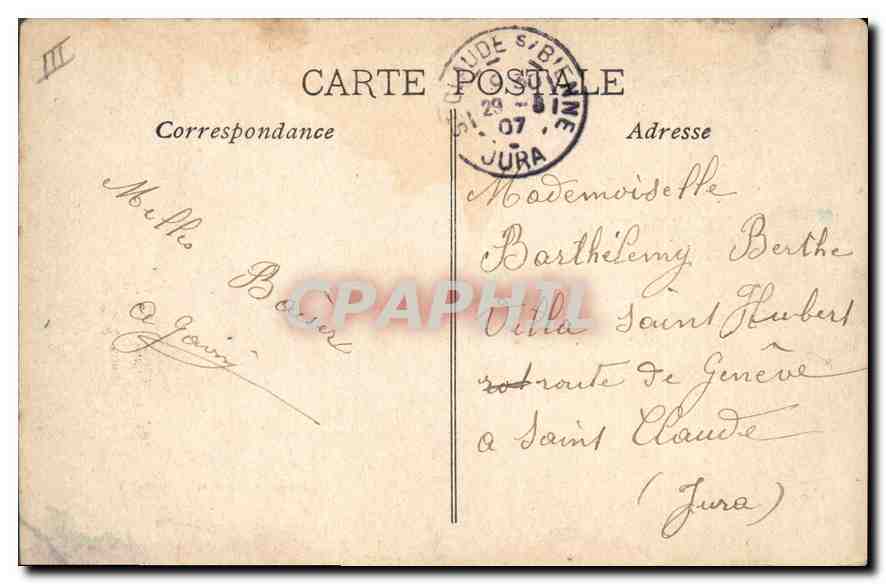 III
CARTE POSTALE
Correspondance
Adresse
ST CLAUDE S/BIENNE
29 -
07
JURA
Mademoiselle
Barthélemy Berthe
Villa Saint Hubert
route de Genêve
a Saint Claude
(Jura)
Milles
Baisers
CPAPHIL